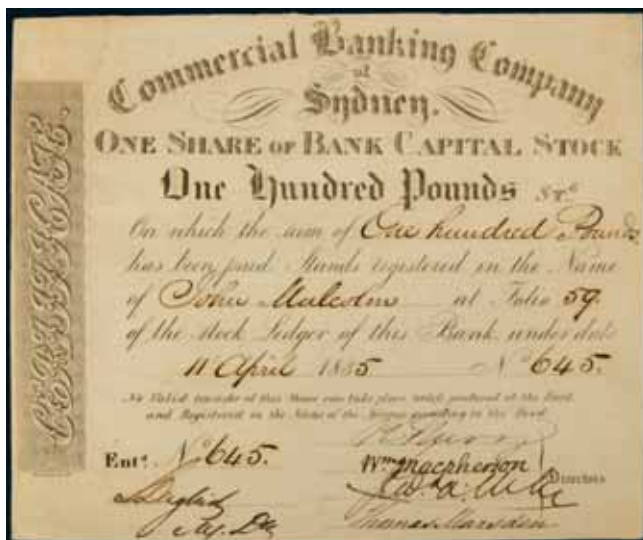 Commercial Banking Company
of
Sydney.
ONE SHARE OF BANK CAPITAL STOCK
One Hundred Pounds STG
On which the sum of One hundred Pounds
has been paid Stands registered in the Name
of John Malcolm at Folio 59.
of the stock Ledger of this Bank under date
11 April 1835 No 645.
No Valid transfer of this Share can take place unless produced at the Bank
and Registered in the Name of the in the Bank
Entd. No 645.
Wm Macpherson
Directors
Thomas Marsden
CERTIFICATE.